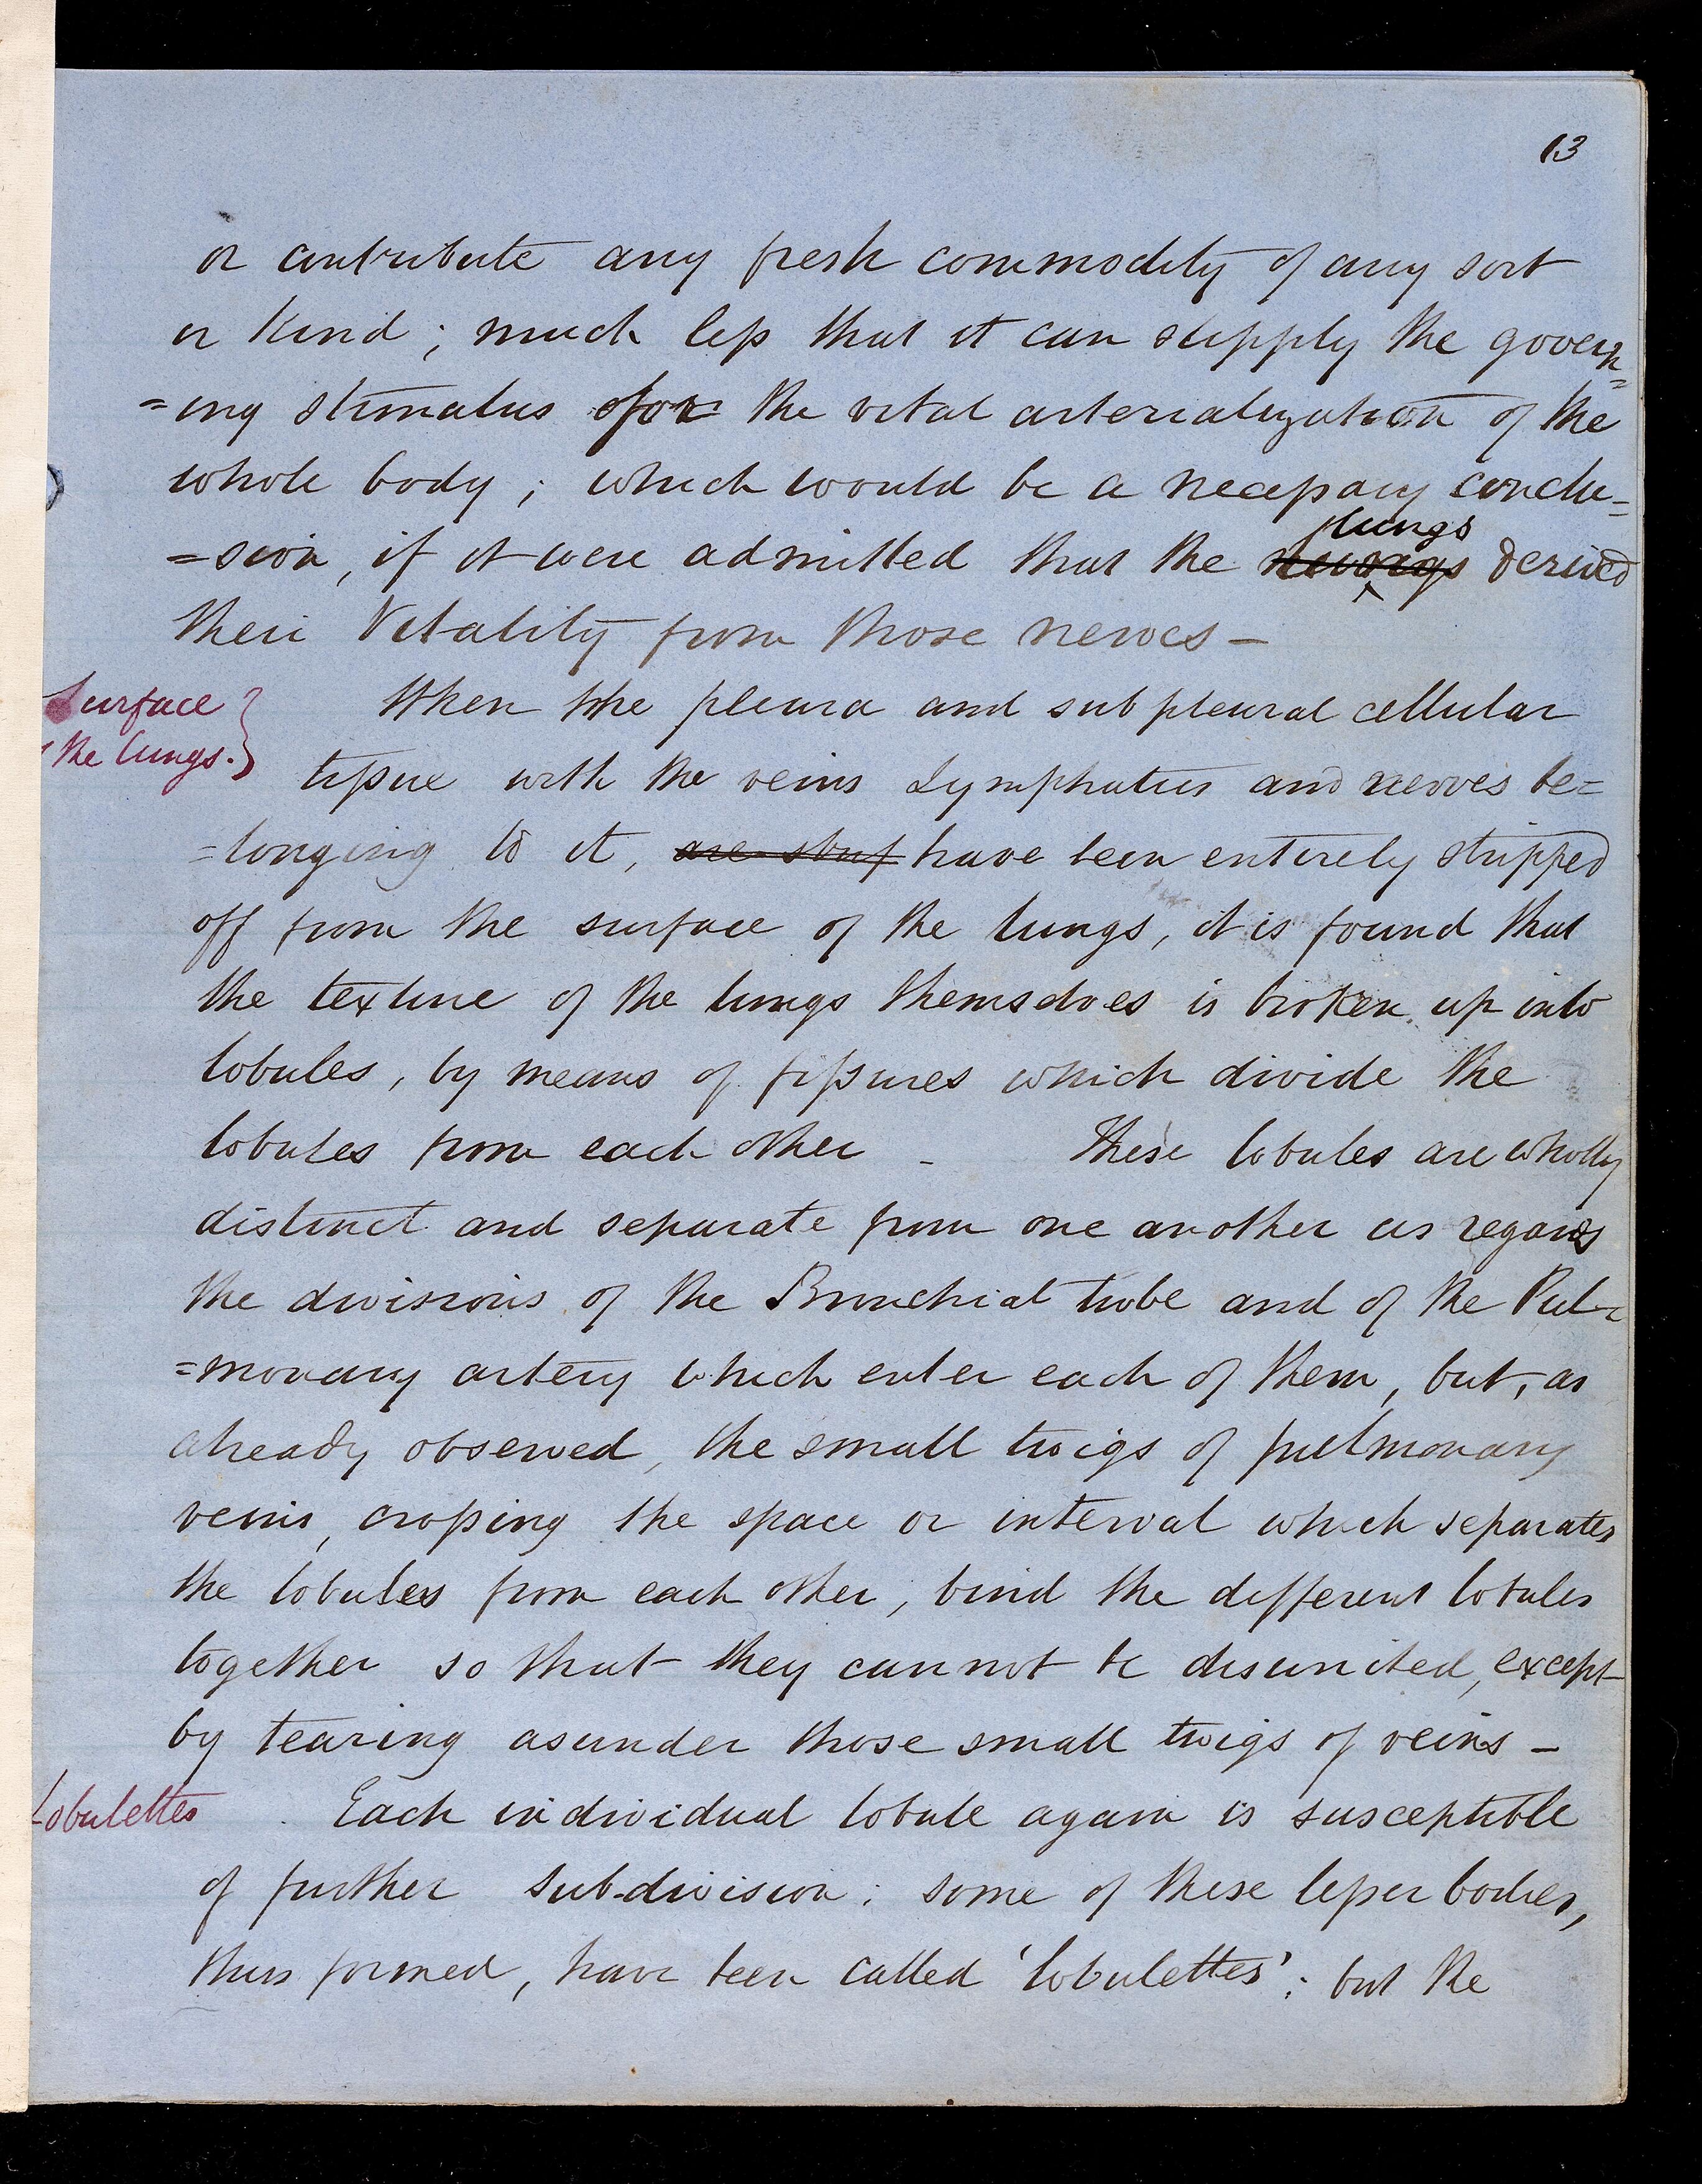 13
or contribute any fresh commodity of any sort
or kind; much less that it can supply the govern=
=ing stimulus for the vital arterialization of the
whole body; which would be a necessary conclu=
lungs
=sion, if it were admitted that the derived
their Vitality from those nerves -
Surface
the lungs.
When the pleura and subpleural cellular
tissue with the veins Lymphatics and nerves be=
=longing to it, are strip have been entirely stripped
off from the surface of the lungs, it is found that
the texture of the lungs themselves is broken up into
lobules, by means of fissures which divide the
lobules from each other - These lobules are wholly
distinct and separate from one another as regards
the divisions of the Bronchial tube and of the Pul=
=monary artery which enter each of them, but, as
already observed, the small twigs of pulmonary
veins, crossing the space or interval which separates
the lobules from each other, bind the different lobules
together so that they cannot be disunited, except
by tearing asunder those small twigs of veins -
Lobulettes
Each individual lobule again is susceptible
of further sub-division: some of these lesser bodies,
thus formed, have been called 'lobulettes': but the